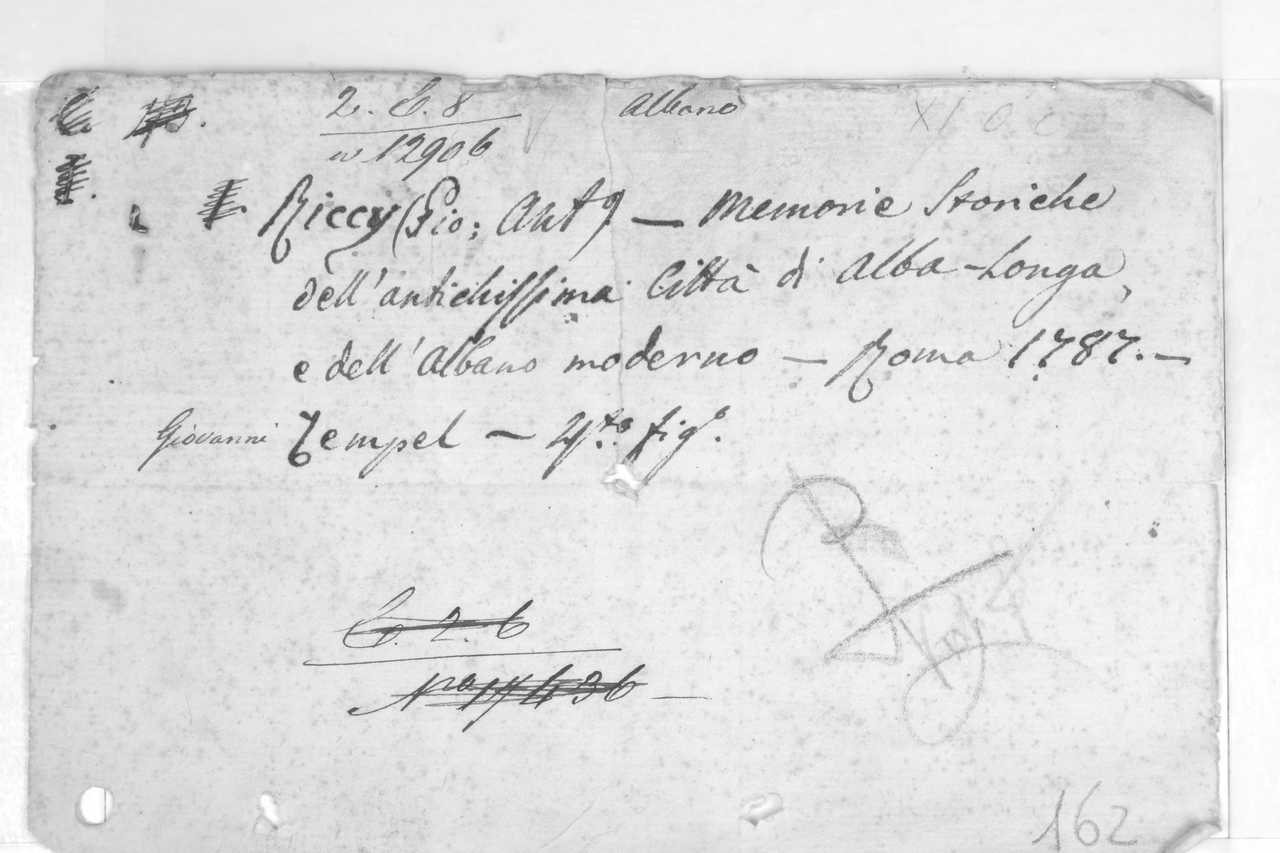 2. C. 8 Albano
n 12906
Riccy (Gio: Antº) — Memorie Storiche
dell'antichissima Città di Alba-Longa,
e dell'Albano moderno — Roma 1787. —
Giovanni Zempel — 4.to fig.º
C. 2. 6
Nro 17436 —
162